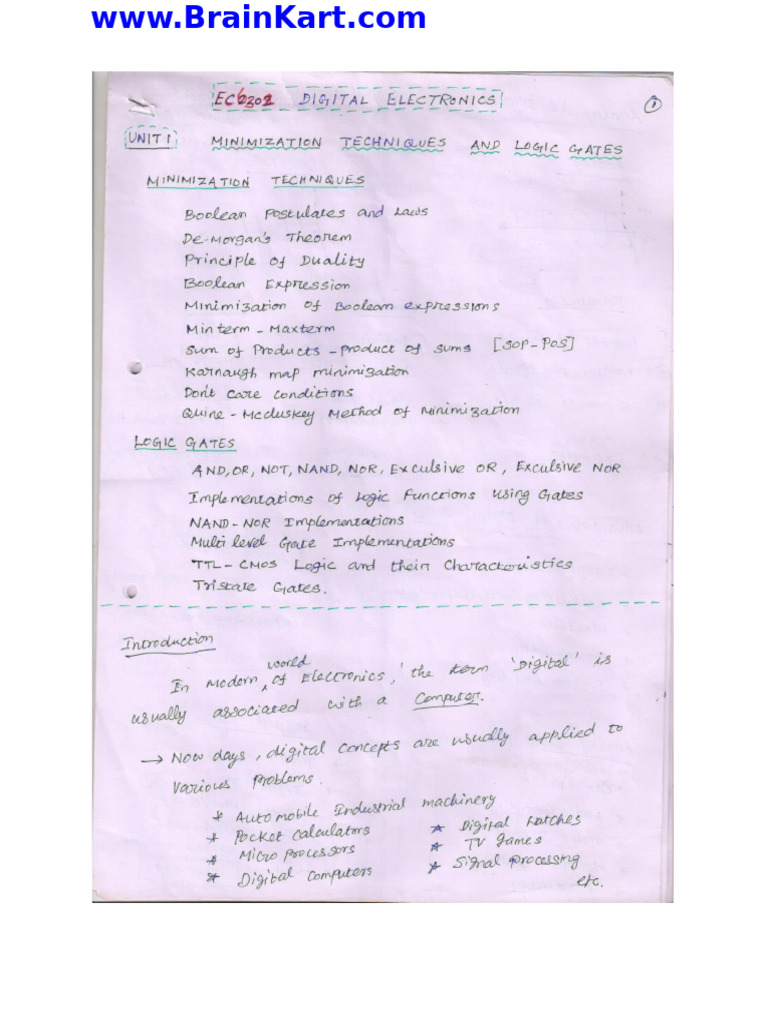 www.BrainKart.com
EC6302 DIGITAL ELECTRONICS
1
UNIT I MINIMIZATION TECHNIQUES AND LOGIC GATES
MINIMIZATION TECHNIQUES
Boolean Postulates and Laws
De-Morgan's Theorem
Principle of Duality
Boolean Expression
Minimization of Boolean expressions
Minterm - Maxterm
Sum of Products - product of sums [SOP-POS]
Karnaugh map minimization
Don't care conditions
Quine - McCluskey Method of Minimization
LOGIC GATES
AND, OR, NOT, NAND, NOR, Exculsive OR, Exculsive NOR
Implementations of Logic Functions using Gates
NAND-NOR Implementations
Multi level Gate Implementations
TTL-CMOS Logic and their Characteristics
Tristate Gates.
Introduction
In Modern world of Electronics, the term 'Digital' is
usually associated with a Computer.
→ Now days, digital concepts are usually applied to
various problems.
* Automobile Industrial machinery
* Pocket calculators * Digital Watches
* Micro processors * TV games
* Digital Computers * Signal processing
etc.